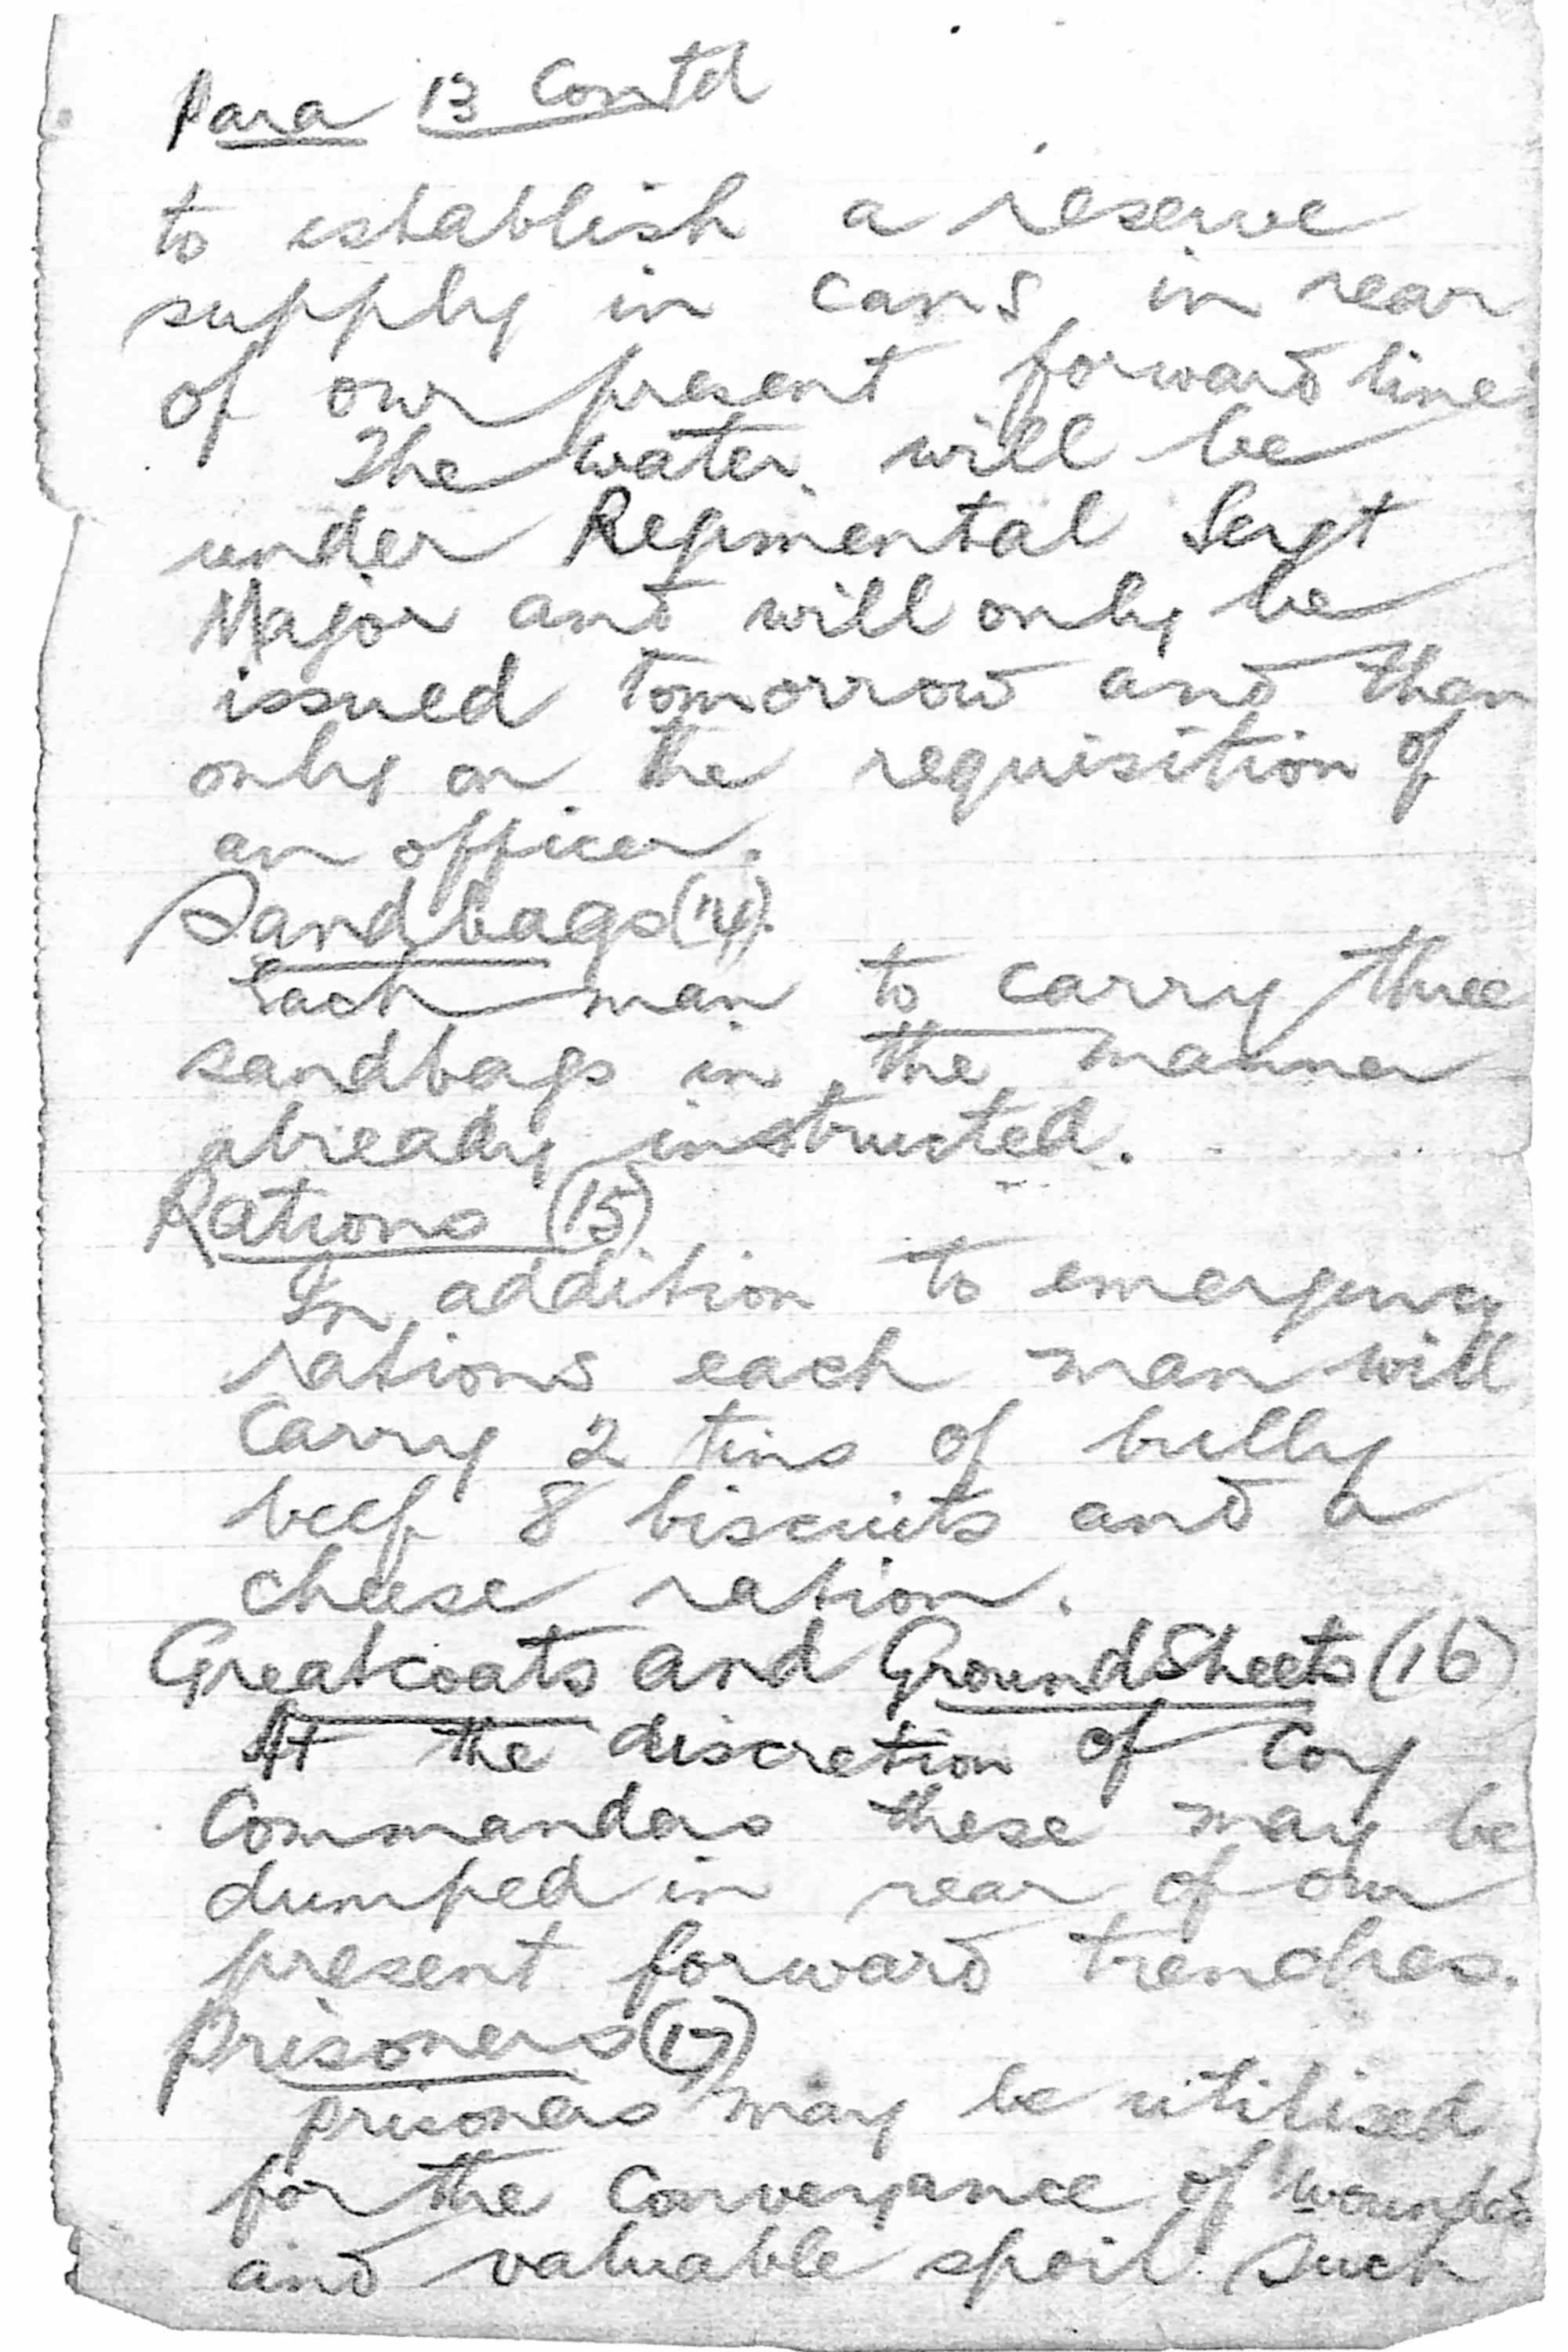 Para 13 Contd
to establish a reserve
supply in cans, in rear
of our present forward line.
The water will be
under Regimental Sergt
Major and will only be
issued tomorrow and then
only on the requisition of
an officer.
Sandbags (14).
Each man to carry three
sandbags in the manner
already instructed.
Rations (15)
In addition to emergency
rations each man will
carry 2 tins of bully
beef 8 biscuits and a
cheese ration.
Greatcoats and Ground Sheets (16)
At the discretion of Coy
Commanders these may be
dumped in rear of our
present forward trenches.
Prisoners (17)
prisoners may be utilised
for the conveyance of wounded
and valuable spoil such